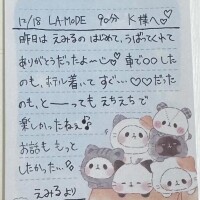 12/18 LA-MODE 90分 K様へ♡
昨日は えみるの はじめて、うばってくれて
ありがとうだったよ〜♡ 車で○○した
のも、ホテル着いて すぐ…♡♡だった
のも、と––っても えちえちで
楽しかったねぇ♪
お話も もっと
したかった…!
えみるより